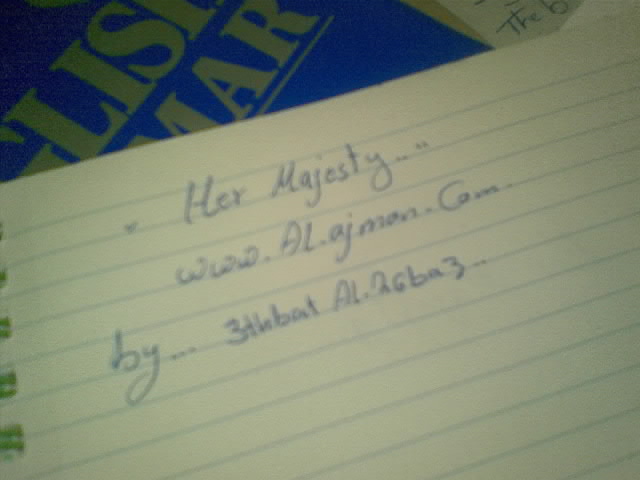 The b
GLISH
MMAR
" Her Majesty.. "
www.AL.ajman.Com.
by.... 3thbat AL.26ba3..